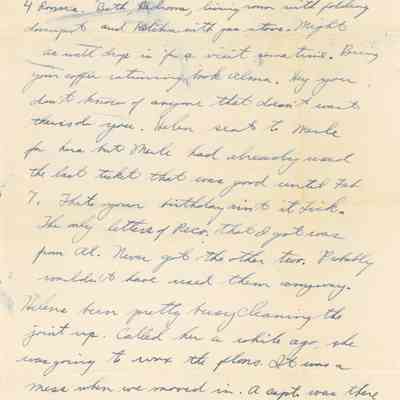 4 Rooms. Bath, Bedroom, living room with folding
davenport and Kitchen with gas stove. Might
as well drop in for a visit sometime. Bring
your coffee returning book Alma. Hey you
don't know of anyone that doesn't want
you. Helen sent to Merle
for hers but Merle had already used
the last ticket that was good until Feb
7. Thats your birthday isn't it Dick.
The only letters of Reco. that I got was
from Al. Never got the other two. Probably
wouldn't have used them anyway.
Helens been pretty busy cleaning the
joint up. Called her a while ago, she
was going to wax the floors. It was a
mess when we moved in. A capt. was there